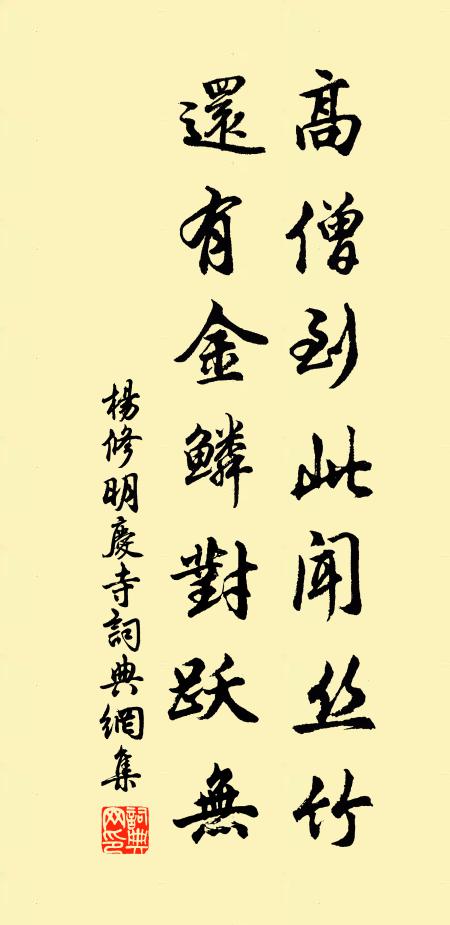 高僧到此闻丝竹
還有金鱗對跃無
楊修明慶寺詞典網集
詞典网印